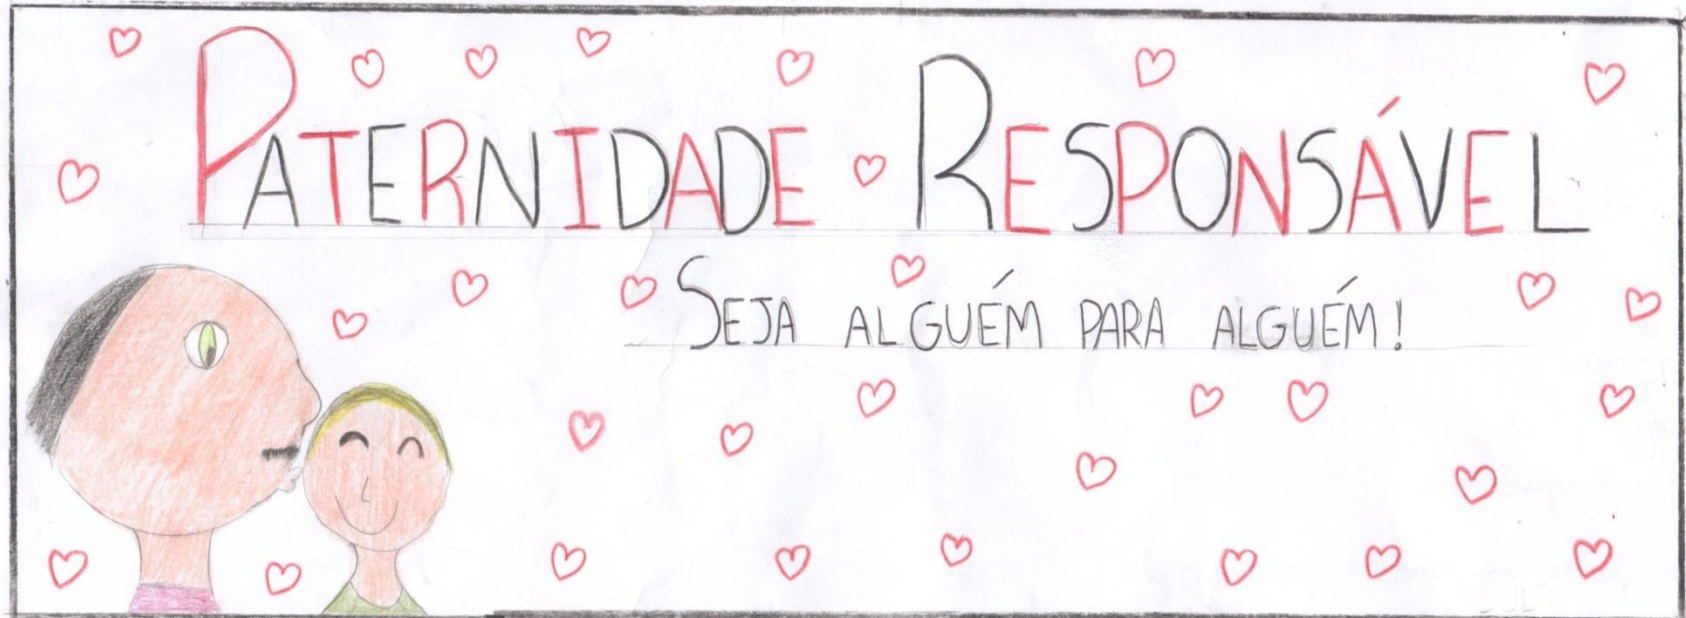 PATERNIDADE RESPONSÁVEL
SEJA ALGUÉM PARA ALGUÉM!